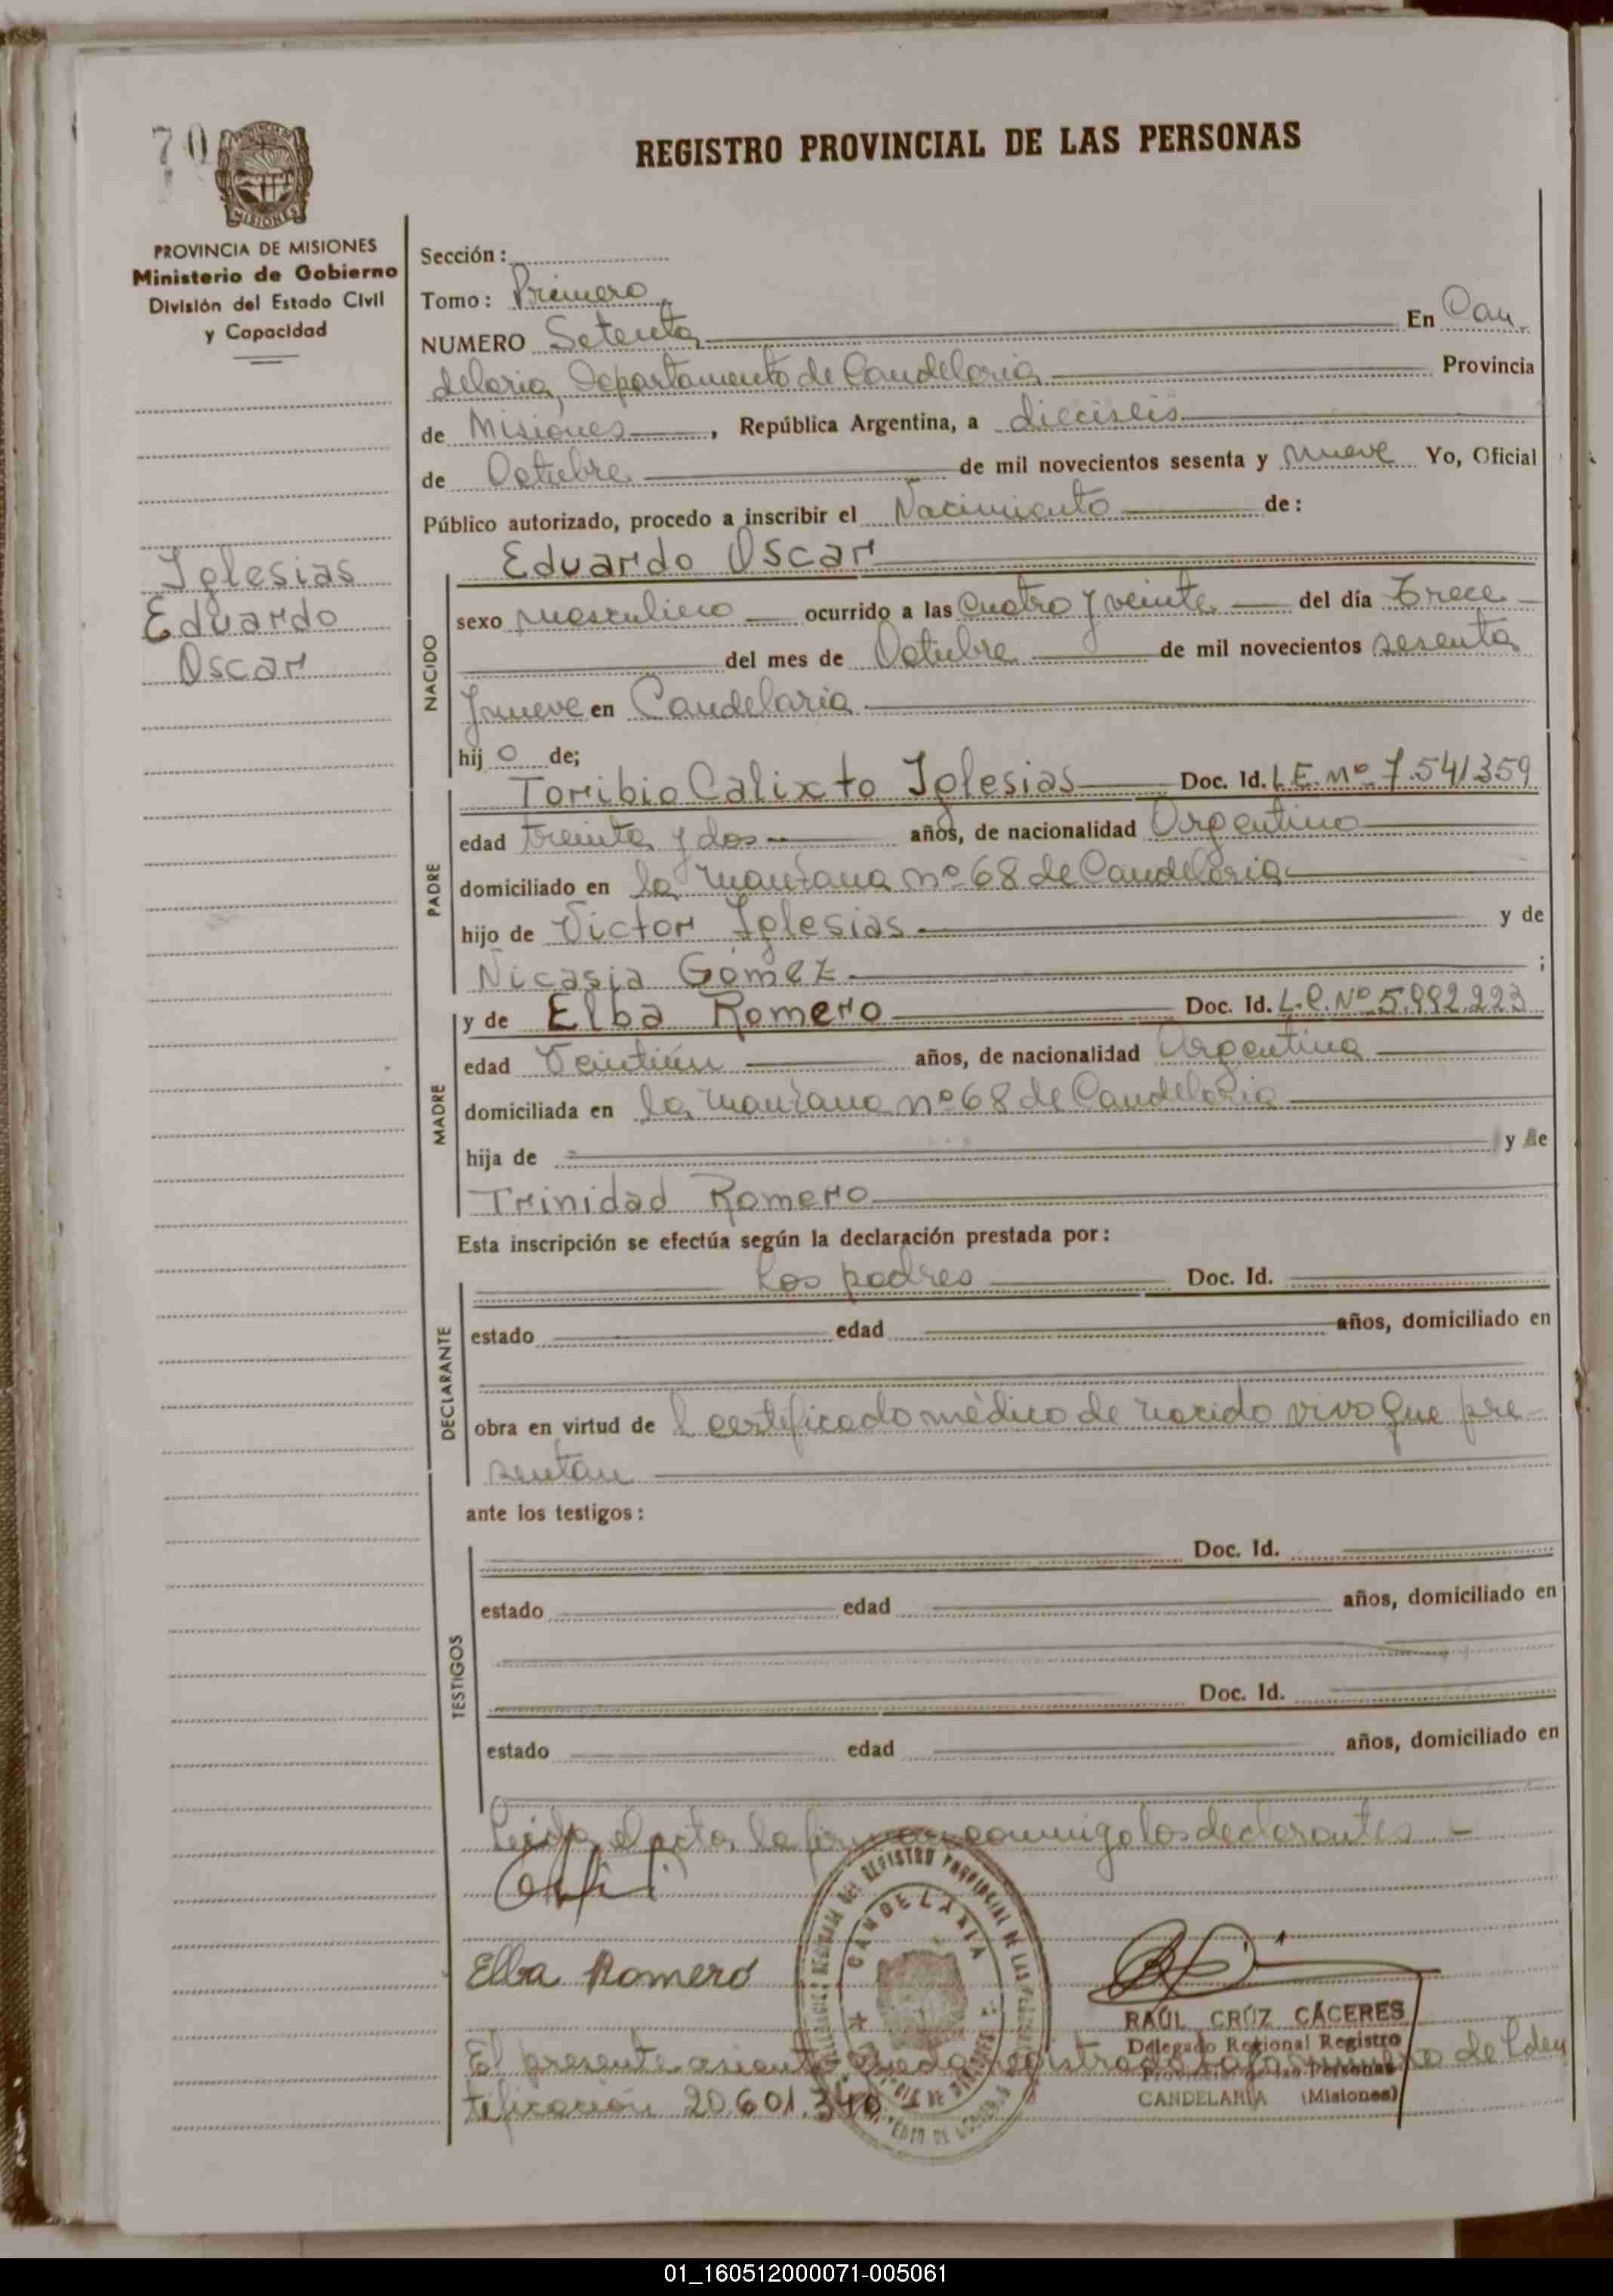 70
PROVINCIA DE MISIONES
Ministerio de Gobierno
División del Estado Civil
y Capacidad
Iglesias
Eduardo
Oscar
REGISTRO PROVINCIAL DE LAS PERSONAS
Sección:
Tomo: Primero
NUMERO Setenta En Can
delaria, Departamento de Candelaria Provincia
de Misiones, República Argentina, a dieciseis
de Octubre de mil novecientos sesenta y nueve Yo, Oficial
Público autorizado, procedo a inscribir el Nacimiento de:
Eduardo Oscar
NACIDO
sexo masculino ocurrido a las cuatro y veinte del día Trece
del mes de Octubre de mil novecientos sesenta
y nueve en Candelaria
hijo de;
PADRE
Toribio Calixto Iglesias Doc. Id. L.E. Nº 7.541.359
edad treinta y dos años, de nacionalidad Argentino
domiciliado en la manzana nº 68 de Candelaria
hijo de Victor Iglesias y de
Nicasia Gómez ;
MADRE
y de Elba Romero Doc. Id. L.C. Nº 5.992.223
edad Veintiún años, de nacionalidad Argentina
domiciliada en la manzana nº 68 de Candelaria
hija de y de
Trinidad Romero
Esta inscripción se efectúa según la declaración prestada por:
DECLARANTE
Los padres Doc. Id.
estado edad años, domiciliado en
obra en virtud de l certificado médico de nacido vivo que pre-
sentan
ante los testigos:
TESTIGOS
Doc. Id.
estado edad años, domiciliado en
Doc. Id.
estado edad años, domiciliado en
Leída el acta, la firman conmigo los declarantes.-
Elba Romero
CANDELARIA
RAÚL CRUZ CÁCERES
Delegado Regional Registro
Provincial de las Personas
CANDELARIA (Misiones)
El presente asiento queda registrado bajo número de Iden
tificación 20.601.340
01_160512000071-005061